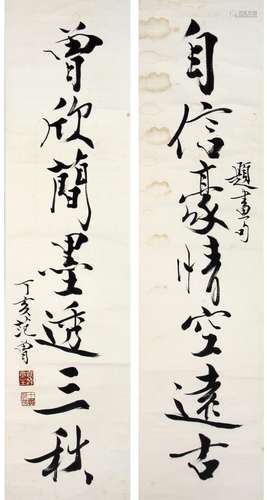 自信豪情空遠古
題畫句
曾欣簡墨透三秋
丁亥范曾